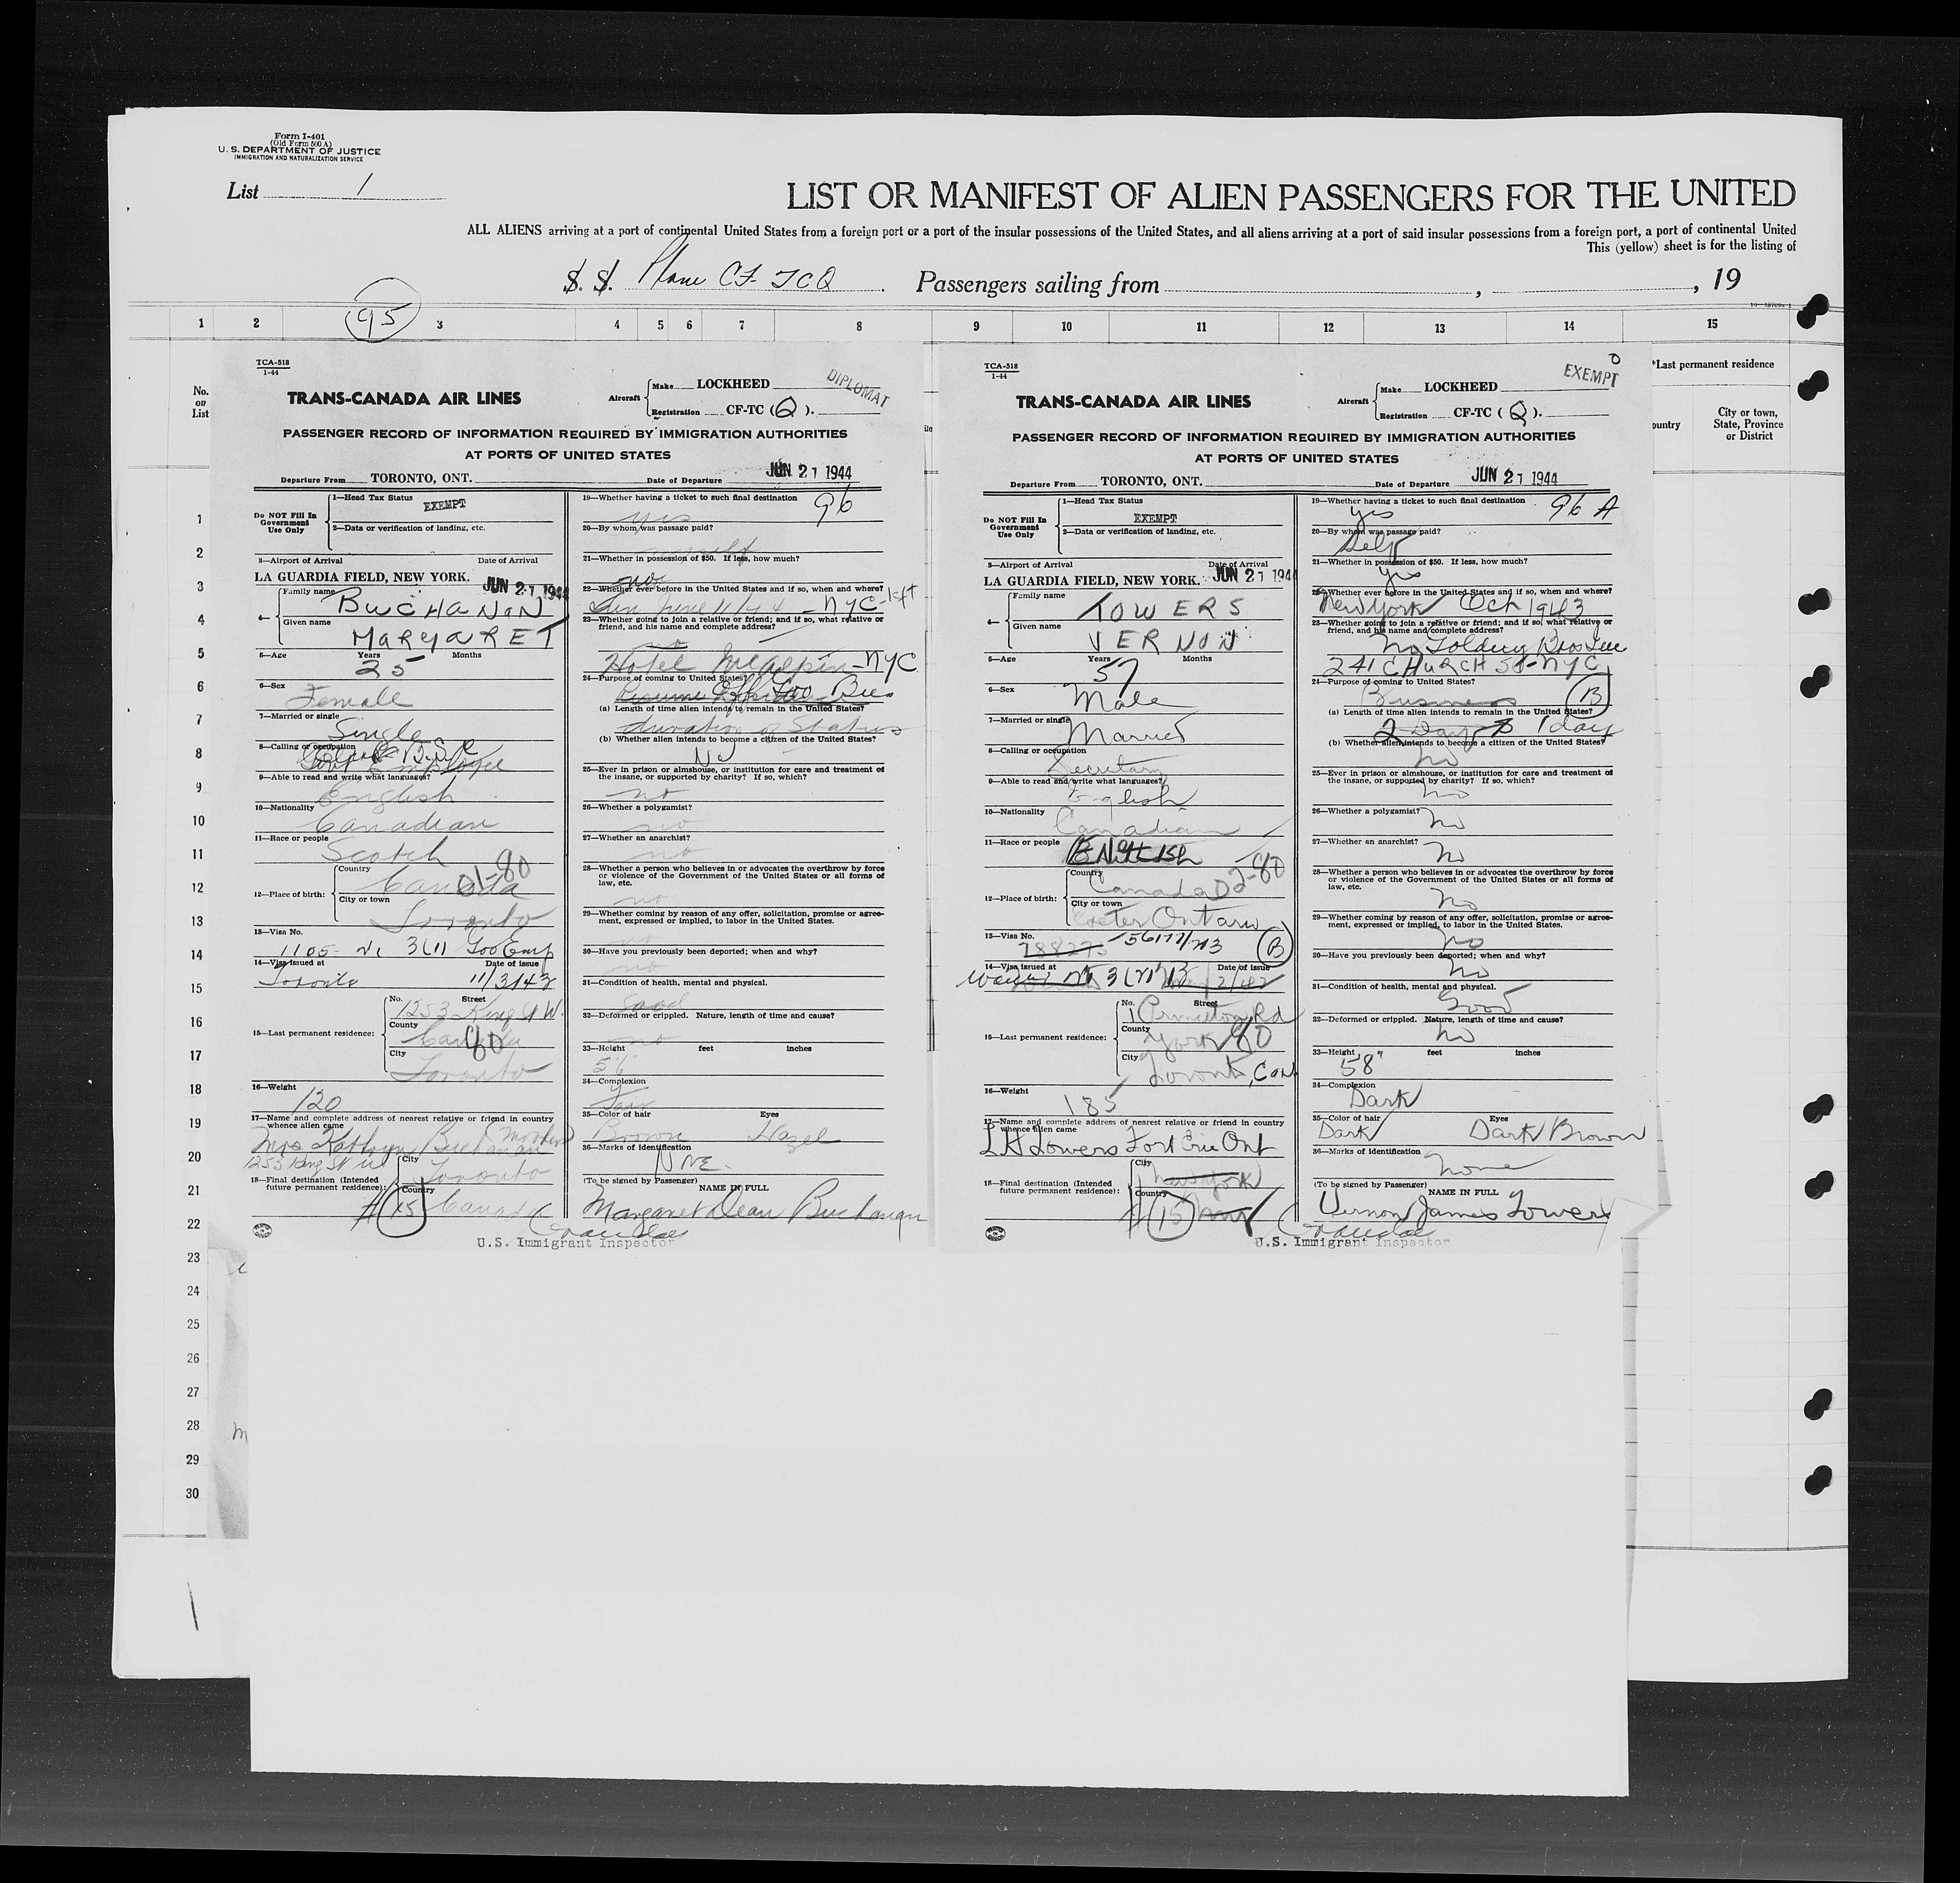 Form I-401
(Old Form 500 A)
U. S. DEPARTMENT OF JUSTICE
IMMIGRATION AND NATURALIZATION SERVICE
List 1
LIST OR MANIFEST OF ALIEN PASSENGERS FOR THE UNITED
ALL ALIENS arriving at a port of continental United States from a foreign port or a port of the insular possessions of the United States, and all aliens arriving at a port of said insular possessions from a foreign port, a port of continental United
This (yellow) sheet is for the listing of
S. S. Plane CF-TCQ Passengers sailing from , , 19
95
1 2 3 4 5 6 7 8 9 10 11 12 13 14 15
No.
on
List
*Last permanent residence
ountry
City or town,
State, Province
or District
1
2
3
4
5
6
7
8
9
10
11
12
13
14
15
16
17
18
19
20
21
22
23
24
25
26
27
28
29
30
TCA-518
1-44
TRANS-CANADA AIR LINES
Aircraft Make LOCKHEED
Registration CF-TC (Q).
DIPLOMAT
PASSENGER RECORD OF INFORMATION REQUIRED BY IMMIGRATION AUTHORITIES
AT PORTS OF UNITED STATES
Departure From TORONTO, ONT. Date of Departure JUN 21 1944
Do NOT Fill In
Government
Use Only
1—Head Tax Status EXEMPT
2—Data or verification of landing, etc.
3—Airport of Arrival Date of Arrival
LA GUARDIA FIELD, NEW YORK. JUN 21 1944
4— Family name BUCHANAN
Given name MARGARET
5—Age Years Months
25
6—Sex
Female
7—Married or single
Single
8—Calling or occupation
Employee
9—Able to read and write what languages?
English
10—Nationality
Canadian
11—Race or people
Scotch
12—Place of birth: Country Canada 01-80
City or town Toronto
13—Visa No.
1105 3(1)
14—Visa issued at Date of issue
Toronto
15—Last permanent residence: No. Street
1253 King St W.
County
City
Toronto
16—Weight
120
17—Name and complete address of nearest relative or friend in country
whence alien came
Mrs Kathryn Buchanan (mother)
1253 King St W City Toronto
18—Final destination (Intended
future permanent residence): Country Canada
15
19—Whether having a ticket to such final destination 96
yes
20—By whom was passage paid?
myself
21—Whether in possession of $50. If less, how much?
no
22—Whether ever before in the United States and if so, when and where?
June 11/44 - NYC - left
23—Whether going to join a relative or friend; and if so, what relative or
friend, and his name and complete address?
no
Hotel McAlpin - NYC
24—Purpose of coming to United States?
(a) Length of time alien intends to remain in the United States?
duration of Status
(b) Whether alien intends to become a citizen of the United States?
NO
25—Ever in prison or almshouse, or institution for care and treatment of
the insane, or supported by charity? If so, which?
no
26—Whether a polygamist?
no
27—Whether an anarchist?
no
28—Whether a person who believes in or advocates the overthrow by force
or violence of the Government of the United States or all forms of
law, etc.
no
29—Whether coming by reason of any offer, solicitation, promise or agree-
ment, expressed or implied, to labor in the United States.
no
30—Have you previously been deported; when and why?
no
31—Condition of health, mental and physical.
Good
32—Deformed or crippled. Nature, length of time and cause?
no
33—Height feet inches
5'6"
34—Complexion
Fair
35—Color of hair Eyes
Brown Hazel
36—Marks of identification
(To be signed by Passenger) NAME IN FULL
Margaret Dean Buchanan
U.S. Immigrant Inspector
TCA-518
1-44
TRANS-CANADA AIR LINES
Aircraft Make LOCKHEED
Registration CF-TC (Q).
EXEMPT
PASSENGER RECORD OF INFORMATION REQUIRED BY IMMIGRATION AUTHORITIES
AT PORTS OF UNITED STATES
Departure From TORONTO, ONT. Date of Departure JUN 21 1944
Do NOT Fill In
Government
Use Only
1—Head Tax Status
EXEMPT
2—Data or verification of landing, etc.
3—Airport of Arrival Date of Arrival
LA GUARDIA FIELD, NEW YORK. JUN 21 194
4— Family name TOWERS
Given name VERNON
5—Age Years Months
57
6—Sex
Male
7—Married or single
Married
8—Calling or occupation
Secretary
9—Able to read and write what languages?
English
10—Nationality
Canadian
11—Race or people
12—Place of birth: Country Canada 02-80
City or town Exeter Ontario
13—Visa No.
788275 56177/713 (B)
14—Visa issued at Date of issue
15—Last permanent residence: No. Street
1 Princeton Rd
County
York 80
City
Toronto, Can
16—Weight
185
17—Name and complete address of nearest relative or friend in country
whence alien came
L H Towers Fort Erie Ont
City New York
18—Final destination (Intended
future permanent residence): Country
15
19—Whether having a ticket to such final destination 96 A
yes
20—By whom was passage paid?
Self
21—Whether in possession of $50. If less, how much?
yes
22—Whether ever before in the United States and if so, when and where?
New York Oct 1943
23—Whether going to join a relative or friend; and if so, what relative or
friend, and his name and complete address?
no
241 CHURCH St - NYC
24—Purpose of coming to United States?
Business (B)
(a) Length of time alien intends to remain in the United States?
2 Days 1 day
(b) Whether alien intends to become a citizen of the United States?
no
25—Ever in prison or almshouse, or institution for care and treatment of
the insane, or supported by charity? If so, which?
no
26—Whether a polygamist?
no
27—Whether an anarchist?
no
28—Whether a person who believes in or advocates the overthrow by force
or violence of the Government of the United States or all forms of
law, etc.
no
29—Whether coming by reason of any offer, solicitation, promise or agree-
ment, expressed or implied, to labor in the United States.
no
30—Have you previously been deported; when and why?
no
31—Condition of health, mental and physical.
Good
32—Deformed or crippled. Nature, length of time and cause?
no
33—Height feet inches
58"
34—Complexion
Dark
35—Color of hair Eyes
Dark Dark Brown
36—Marks of identification
none
(To be signed by Passenger) NAME IN FULL
Vernon James Towers
U.S. Immigrant Inspector